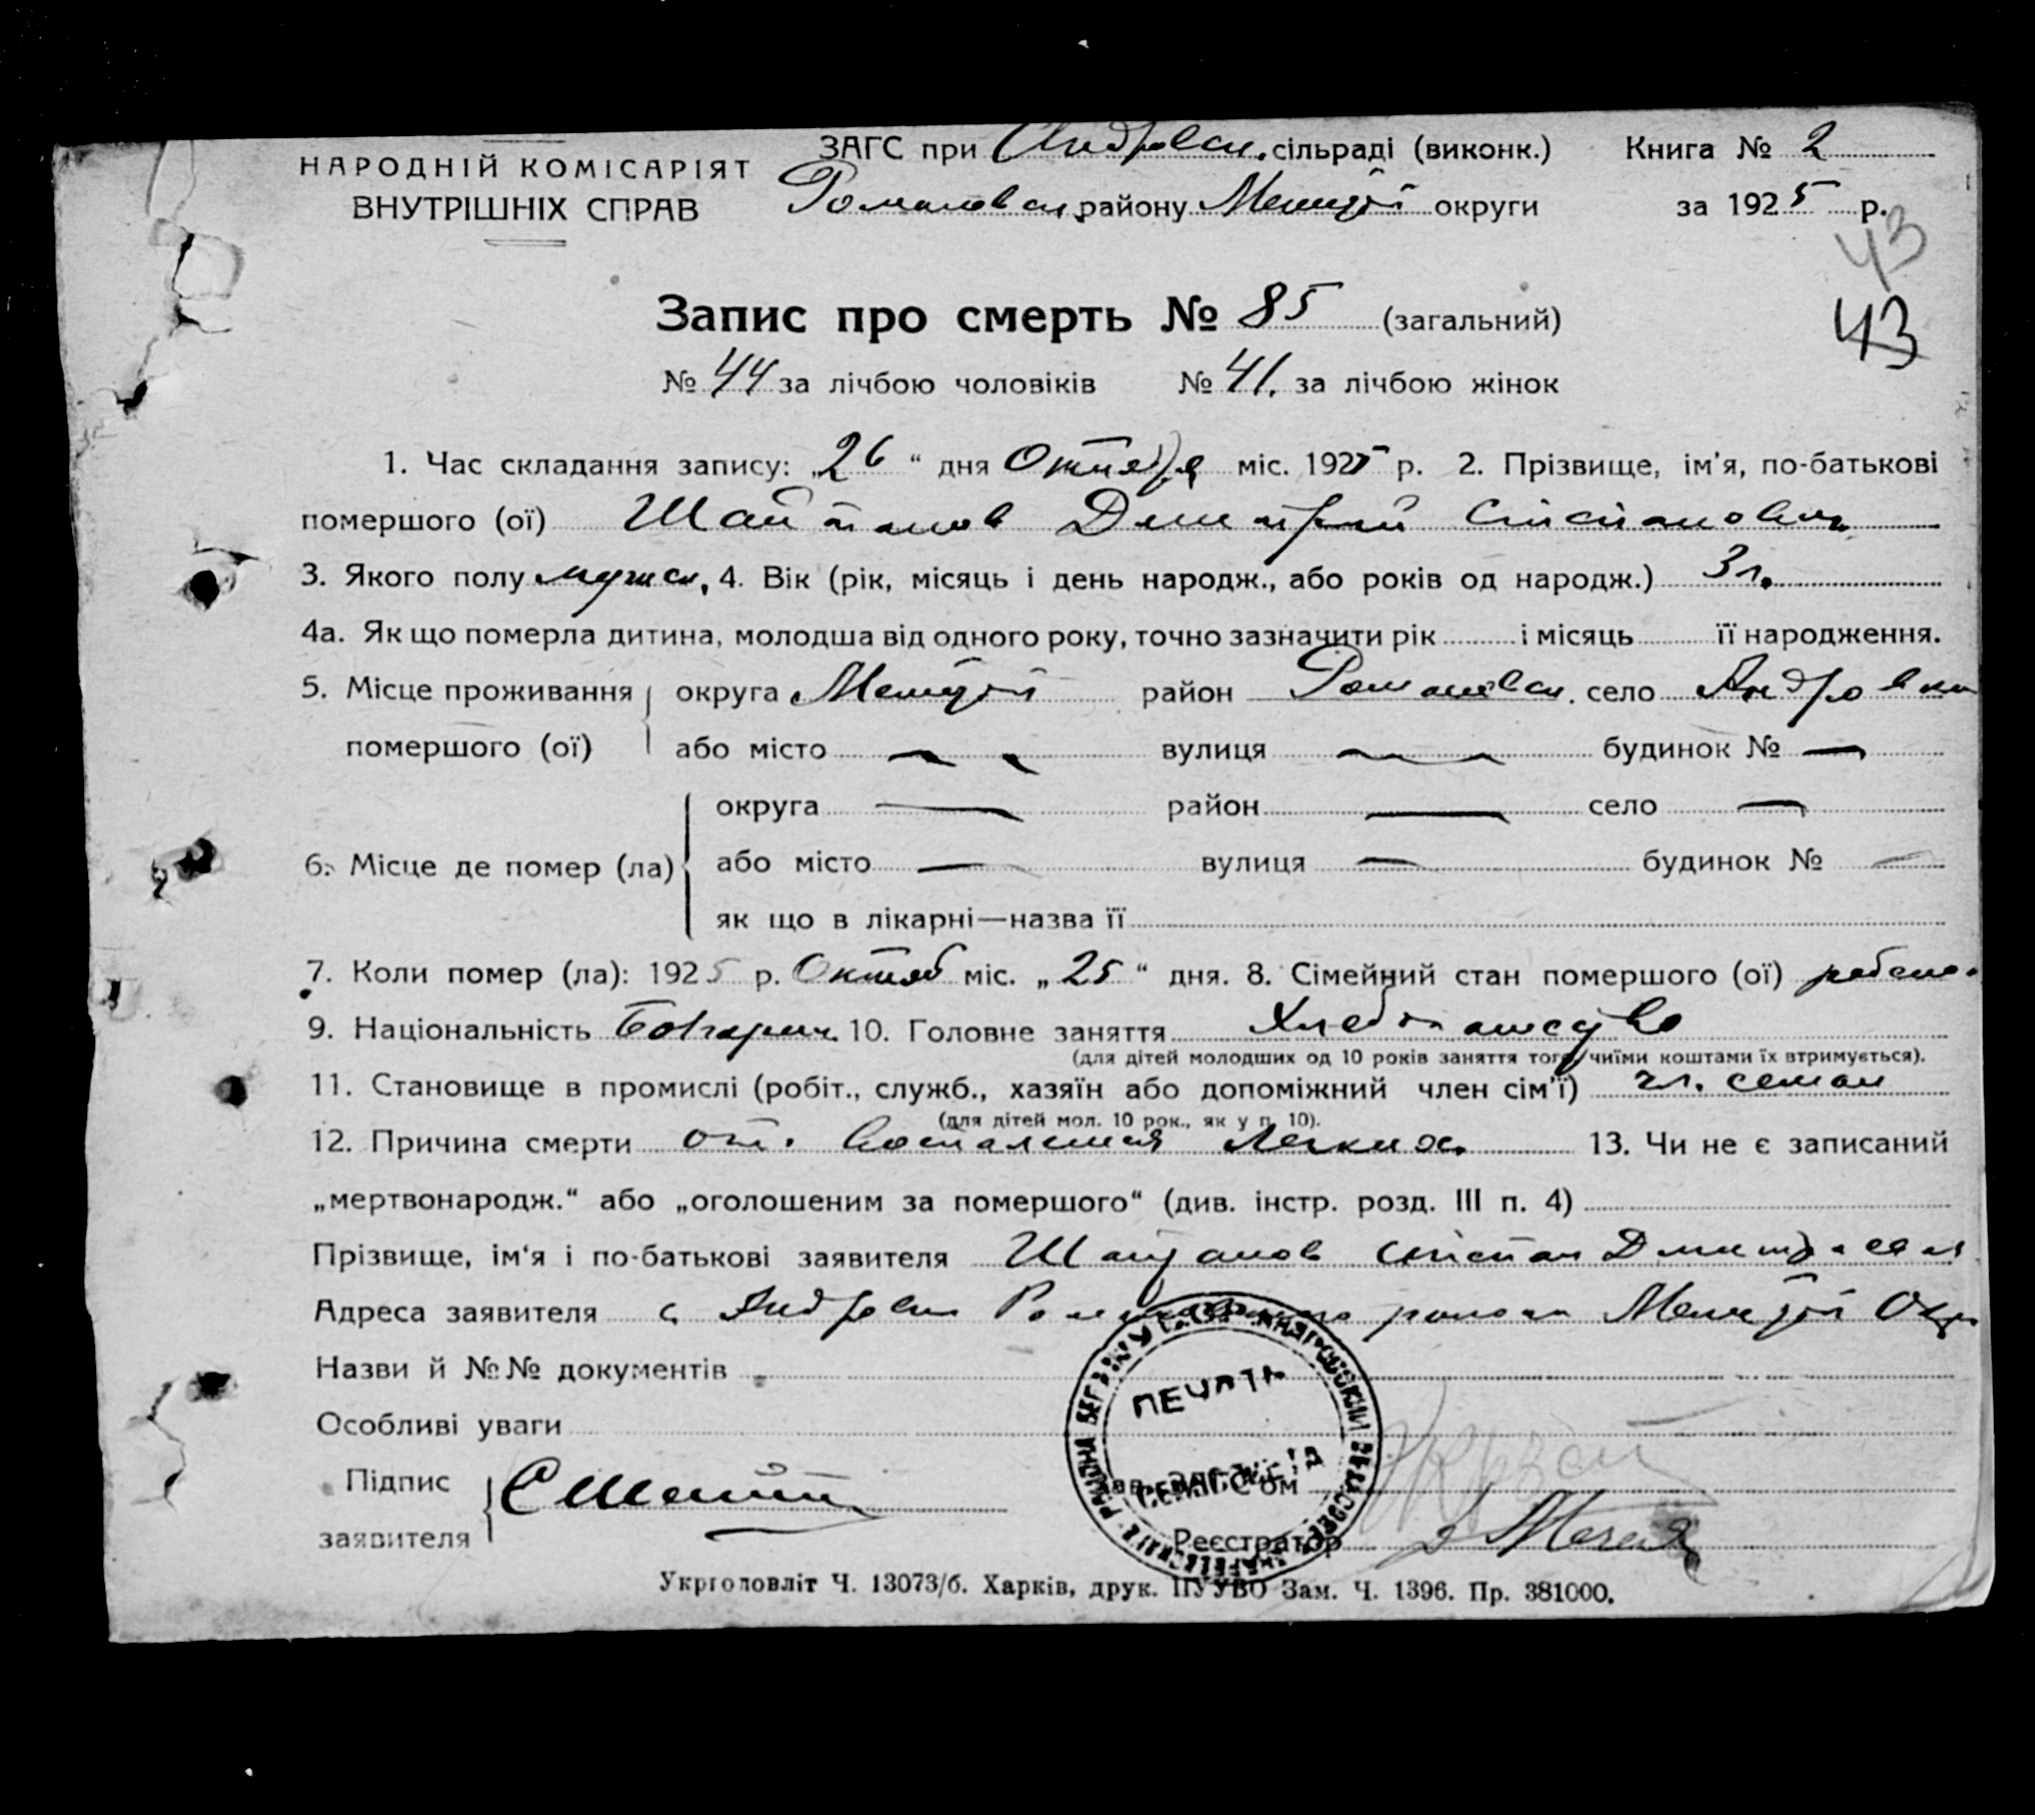 НАРОДНІЙ КОМІСАРІЯТ
ВНУТРІШНІХ СПРАВ
ЗАГС при Андровск. сільраді (виконк.) Книга № 2
Романовск. району округи за 1925 р.
43
43
Запис про смерть № 85 (загальний)
№ 44 за лічбою чоловіків № 41. за лічбою жінок
1. Час складання запису: „26“ дня міс. 1925 р. 2. Прізвище, ім'я, по-батькові
помершого (ої) Шайтанов Дмитрий Степанович
3. Якого полу мужск. 4. Вік (рік, місяць і день народж., або років од народж.) 3 л.
4а. Як що померла дитина, молодша від одного року, точно зазначити рік і місяць її народження.
5. Місце проживання округа район Романовск. село Андровка
помершого (ої) або місто — — вулиця — — будинок № —
округа — район — село —
6. Місце де помер (ла) або місто — вулиця — будинок № —
як що в лікарні—назва її
7. Коли помер (ла): 1925 р. Октяб міс. „25“ дня. 8. Сімейний стан помершого (ої)
9. Національність 10. Головне заняття
(для дітей молодших од 10 років заняття того, чиїми коштами їх втримується).
11. Становище в промислі (робіт., служб., хазяїн або допоміжний член сім'ї) гл. семьи
(для дітей мол. 10 рок., як у п. 10).
12. Причина смерти от. воспаления легких. 13. Чи не є записаний
„мертвонародж.“ або „оголошеним за помершого“ (див. інстр. розд. III п. 4)
Прізвище, ім'я і по-батькові заявителя Шайтанов Степан
Адреса заявителя с. Андровки
Назви й №№ документів
Особливі уваги
ПЕЧАТЬ
Підпис
заявителя
Реєстратор
Укрголовліт Ч. 13073/б. Харків, друк. ПУУВО Зам. Ч. 1396. Пр. 381000.